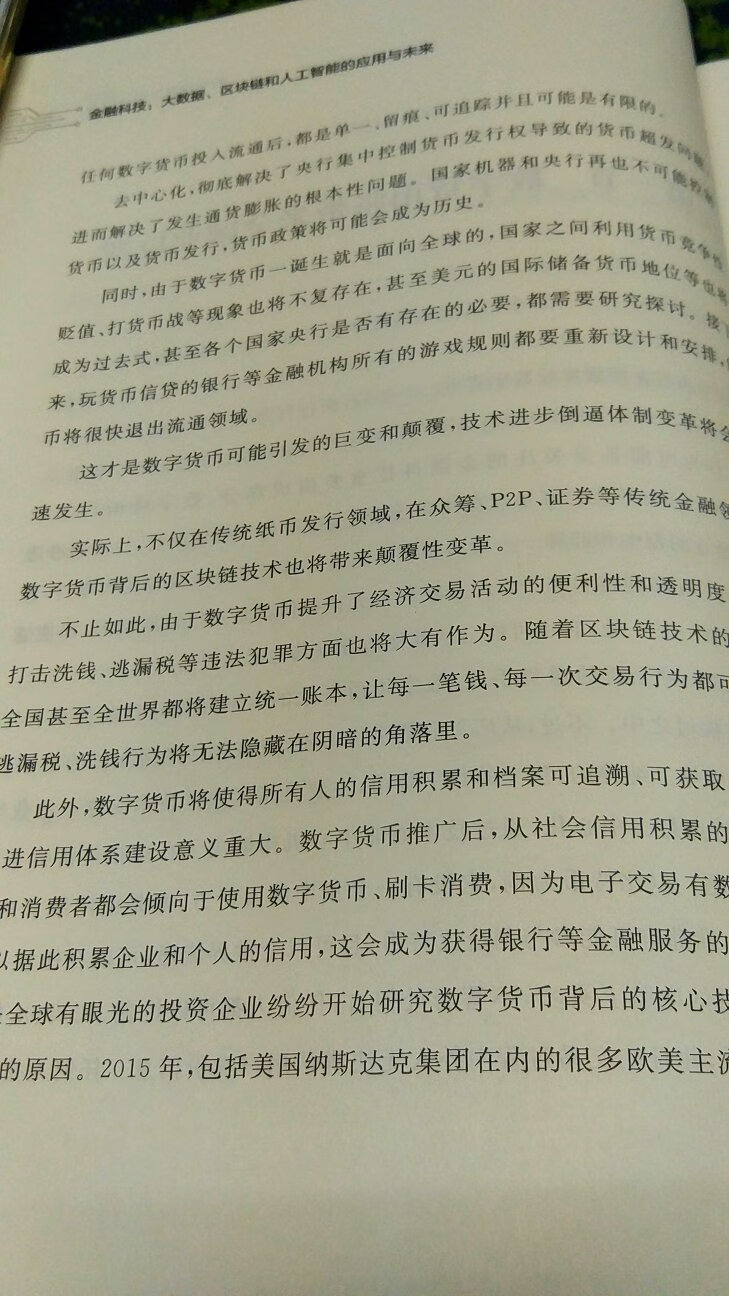 金融科技：大数据、区块链和人工智能的应用与未来
任何数字货币投入流通后，都是单一、留痕、可追踪并且可能是有限的。
去中心化，彻底解决了央行集中控制货币发行权导致的货币超发问题，
进而解决了发生通货膨胀的根本性问题。国家机器和央行再也不可能控制
货币以及货币发行，货币政策将可能会成为历史。
同时，由于数字货币一诞生就是面向全球的，国家之间利用货币竞争性
贬值、打货币战等现象也将不复存在，甚至美元的国际储备货币地位等也将
成为过去式，甚至各个国家央行是否有存在的必要，都需要研究探讨。接下
来，玩货币信贷的银行等金融机构所有的游戏规则都要重新设计和安排，
币将很快退出流通领域。
这才是数字货币可能引发的巨变和颠覆，技术进步倒逼体制变革将会
速发生。
实际上，不仅在传统纸币发行领域，在众筹、P2P、证券等传统金融领
数字货币背后的区块链技术也将带来颠覆性变革。
不止如此，由于数字货币提升了经济交易活动的便利性和透明度
打击洗钱、逃漏税等违法犯罪方面也将大有作为。随着区块链技术的
全国甚至全世界都将建立统一账本，让每一笔钱、每一次交易行为都可
逃漏税、洗钱行为将无法隐藏在阴暗的角落里。
此外，数字货币将使得所有人的信用积累和档案可追溯、可获取
进信用体系建设意义重大。数字货币推广后，从社会信用积累的
和消费者都会倾向于使用数字货币、刷卡消费，因为电子交易有数
以据此积累企业和个人的信用，这会成为获得银行等金融服务的
全球有眼光的投资企业纷纷开始研究数字货币背后的核心技
的原因。2015 年，包括美国纳斯达克集团在内的很多欧美主流